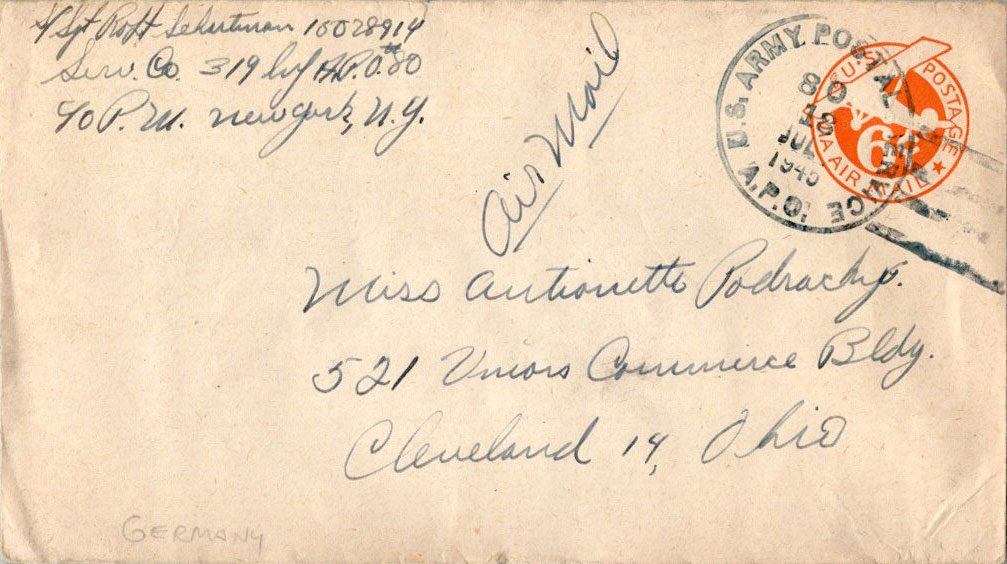 S/Sgt Robt Schurtman 15028914
Serv. Co. 319 Inf A.P.O. #80
℅ P.M. New York, N.Y.
Air Mail
U.S. ARMY POSTAL SERVICE
80
JUL
1945
A.P.O.
U.S. POSTAGE
6¢
VIA AIR MAIL
Miss Antionette
521 Union Commerce Bldg.
Cleveland 14, Ohio
GERMANY